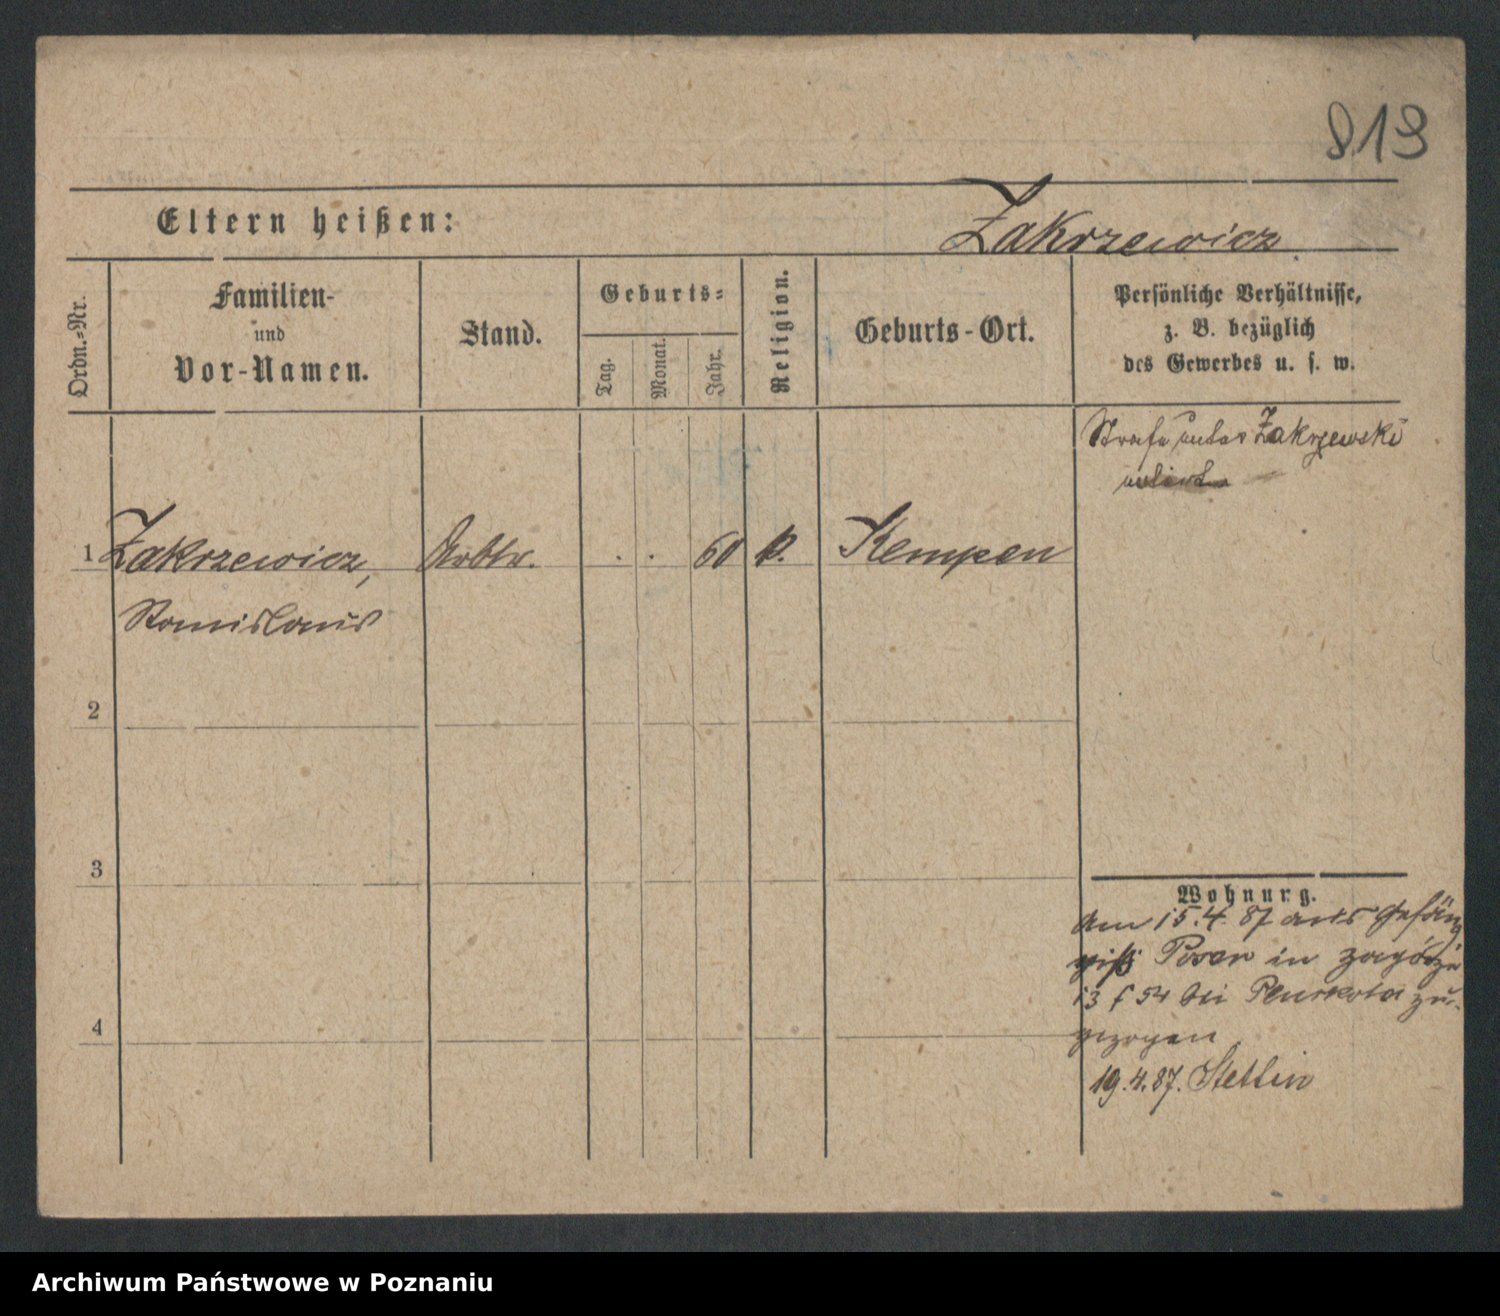 813
Eltern heißen:
Zakrzewicz
Ordn.-Nr.
Familien-
und
Vor-Namen.
Stand.
Geburts-
Tag.
Monat.
Jahr.
Religion.
Geburts-Ort.
Persönliche Verhältnisse,
z. B. bezüglich
des Gewerbes u. s. w.
Strafe unter Zakrzewski
notirt
1 Zakrzewicz, Arbtr. . . 60 k. Kempen
Stanislaus
2
3
4
Wohnung.
Am 15.4.87 aus Gefäng
niß Posen in Zagórze
13 f 54 bei Pluskota zu-
gezogen
19.4.87. Stettin
Archiwum Państwowe w Poznaniu